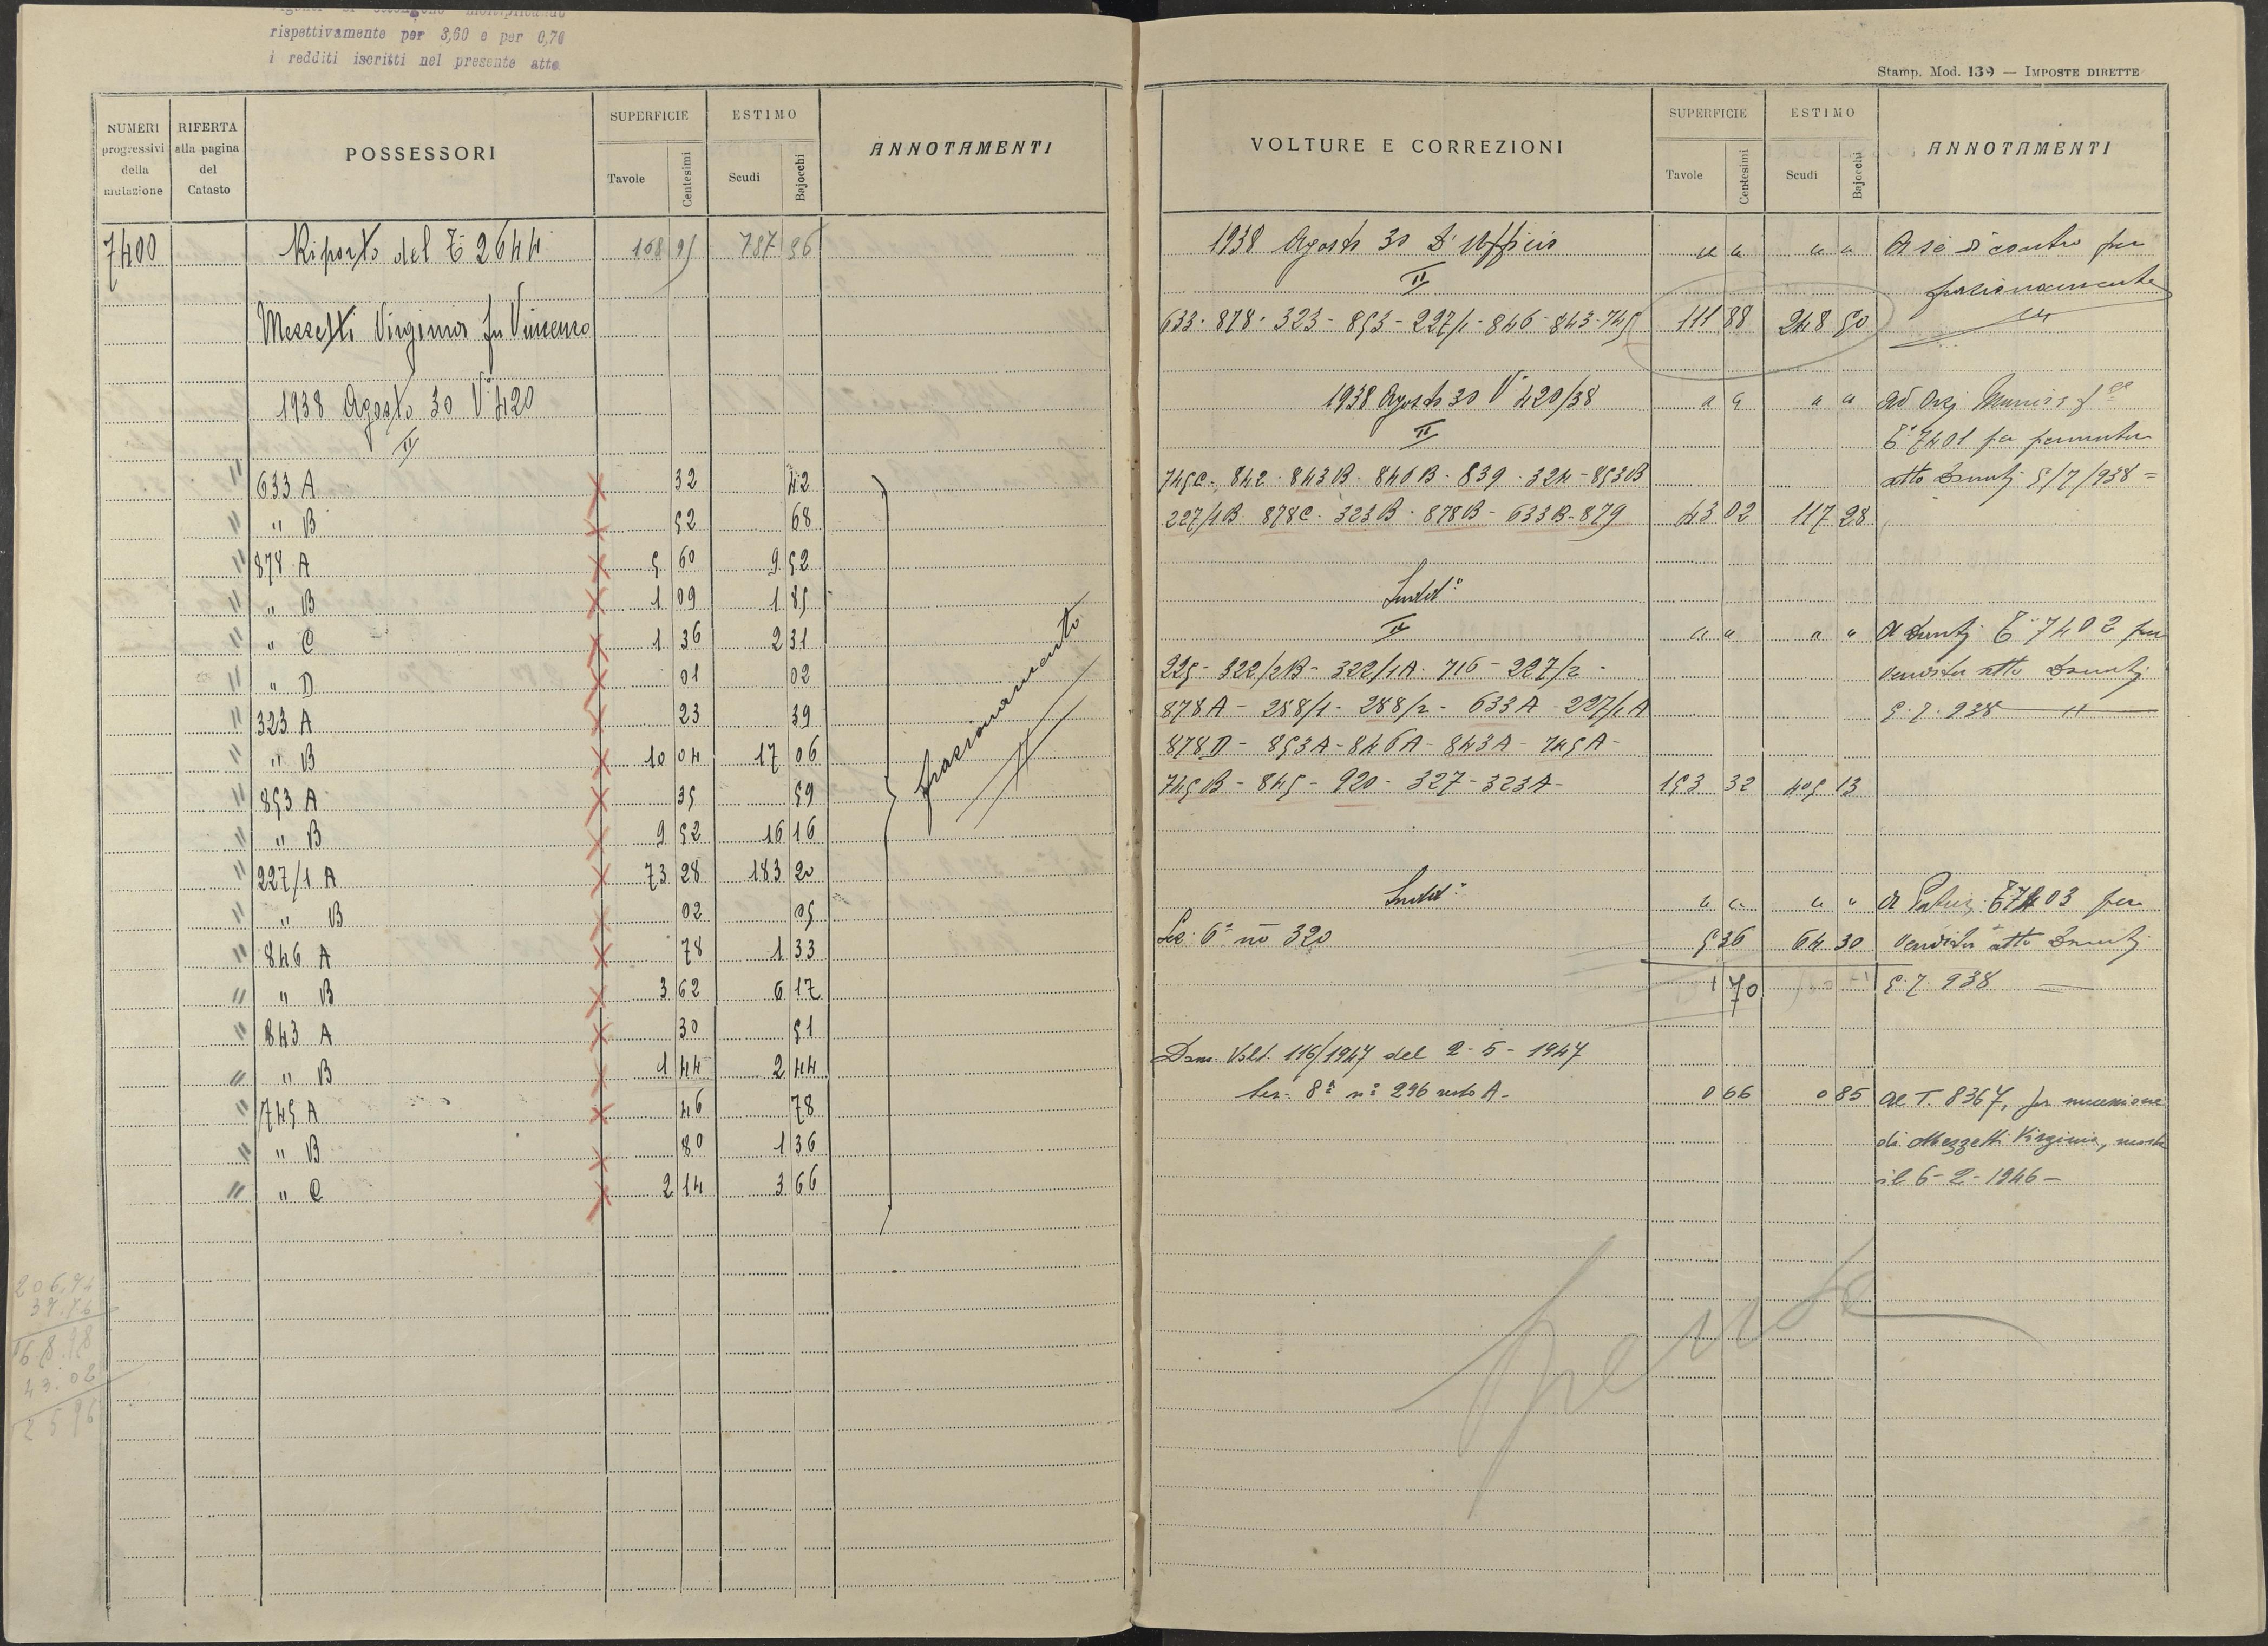 rispettivamente per 3,60 e per 0,70
i redditi iscritti nel presente atto
NUMERI progressivi della mutazione
RIFERTA alla pagina del Catasto
POSSESSORI
SUPERFICIE
Tavole
Centesimi
ESTIMO
Scudi
Bajocchi
ANNOTAMENTI
7400 Riporto del T. 2644 787 96
Mezzetti Virginia fu Vincenzo
1938 Agosto 30 V° 420
II
" 633 A 32 42
" " B 52 68
" 878 A 5 60 9 52
" " B 1 09 1 85
" " C 1 36 2 31
" " D 01 02
" 323 A 23 39
" " B 10 04 17 06
" 853 A 35 59
" " B 9 52 16 16
" 227/1 A 73 28 183 20
" " B 02 05
" 846 A 78 1 33
" " B 3 62 6 17
" 843 A 30 51
" " B 1 44 2 44
" 745 A 46 78
" " B 80 1 36
" " C 2 14 3 66
frazionamento
206.74
37.76
168.98
43.02
125 96
Stamp. Mod. 139 — IMPOSTE DIRETTE
VOLTURE E CORREZIONI
SUPERFICIE
Tavole
Centesimi
ESTIMO
Scudi
Bajocchi
ANNOTAMENTI
1938 Agosto 30 D'Ufficio " " " " A sè di contro per
II frazionamento
633 - 878 - 323 - 853 - 227/1 - 846 - 843 - 745 111 88 248 50
1938 Agosto 30 V° 420/38 " " " "
II T. 7401 per permuta
745C - 842 - 843B - 846B - 839 - 324 - 853B atto 5/7/938 =
227/1B - 878C - 323B - 878B - 633B - 879 43 02 117 28
Sudd°
II " " " " T. 7402 per
225 - 322/2B - 322/1A - 716 - 227/2 - vendita atto
878A - 288/1 - 288/2 - 633A - 227/1A 5.7.938 "
878D - 853A - 846A - 843A - 745A -
745B - 845 - 920 - 327 - 323A - 153 32 405 13
Sudd° " " " " T. 7403 per
Sez. 6ª n° 320 5 36 64 30 vendita atto
70 5.7.938
Dom. Volt. 116/1947 del 2-5-1947
Sez. 8ª n° 296 resto A - 0 66 0 85 Al T. 8367, per successione
di Mezzetti Virginia, morta
il 6-2-1946 -